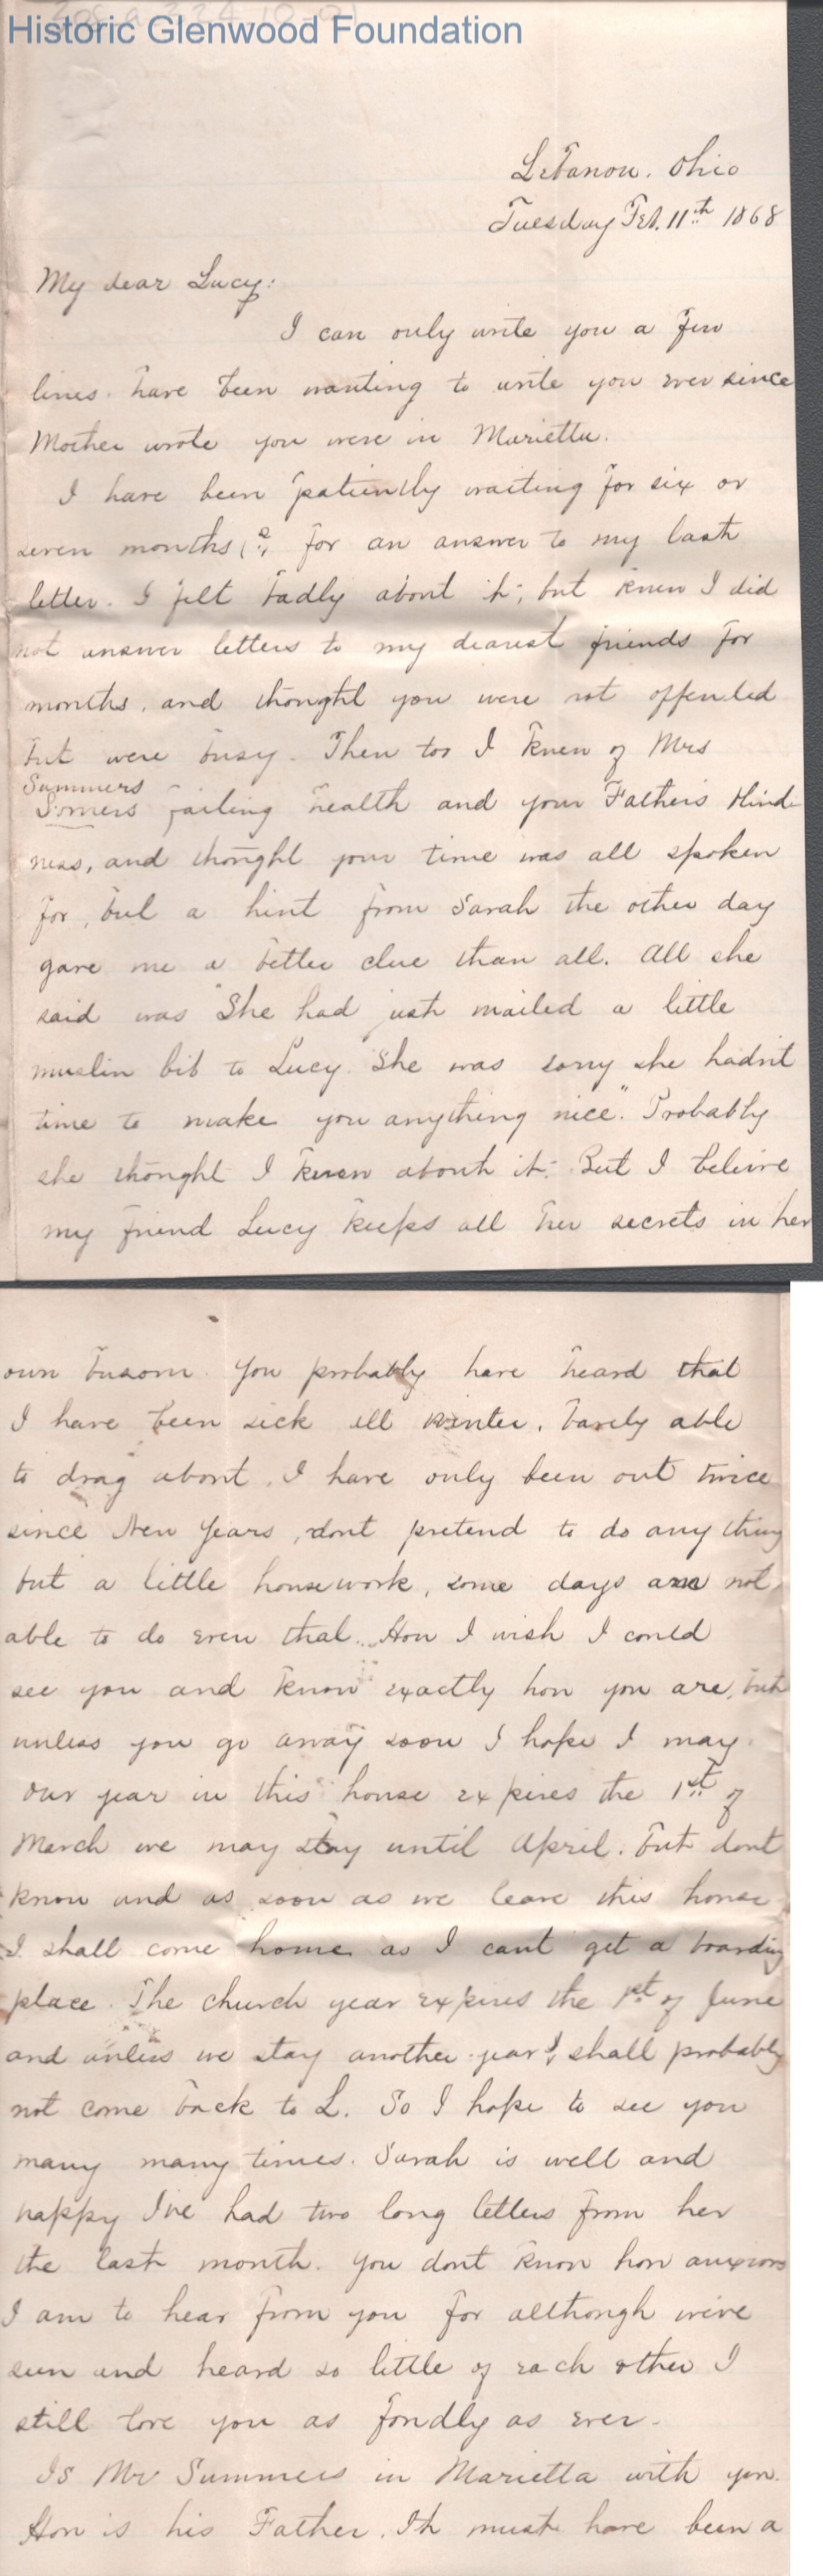 Historic Glenwood Foundation
Lebanon. Ohio
Tuesday Feb. 11th 1868
My dear Lucy:
I can only write you a few
lines. have been wanting to write you ever since
Mother wrote you were in Marietta.
I have been patiently waiting for six or
seven months (?) for an answer to my last
letter. I felt badly about it; but knew I did
not answer letters to my dearest friends for
months. and thought you were not offended
but were busy. Then too I knew of Mrs
Summers
Somers failing health and your Father's blind-
ness, and thought your time was all spoken
for, but a hint from Sarah the other day
gave me a better clue than all. All she
said was "She had just mailed a little
muslin bib to Lucy. She was sorry she hadn't
time to make you anything nice". Probably
she thought I knew about it. But I believe
my friend Lucy keeps all her secrets in her
own busom. You probably have heard that
I have been sick all winter. barely able
to drag about. I have only been out twice
since New Years, dont pretend to do any thing
but a little housework, some days am not
able to do even that. How I wish I could
see you and know exactly how you are, but
unless you go away soon I hope I may.
Our year in this house expires the 1st of
March we may stay until April. but dont
know and as soon as we leave this house
I shall come home as I cant get a boarding
place. The church year expires the 1st of June
and unless we stay another year I shall probably
not come back to L. So I hope to see you
many many times. Sarah is well and
happy I've had two long letters from her
the last month. You dont know how anxious
I am to hear from you for although we've
seen and heard so little of each other I
still love you as fondly as ever.
Is Mr Summers in Marietta with you.
How is his Father. It must have been a